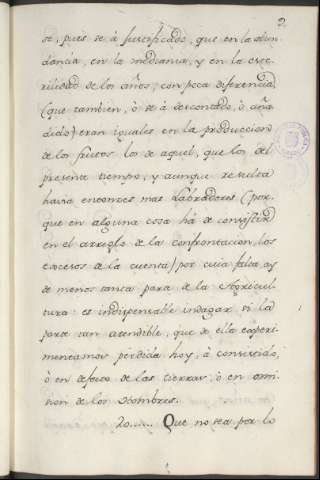 2
se, pues se á justificado, que en la abun
dancia, en la medianía, y en la este
rilidad de los años, con poca diferencia
(que tambien, ò se á descontado, ò aña
dido) eran iguales en la produccion
de los frutos los de aquel, que los del
presente tiempo, y aunque resulta
havia entonces mas Labradores (por
que en alguna cosa há de consistir
en el arreglo de la confrontacion, los
excesos de la cuenta) por cuia falta ay
de menos tanta parte de la Agricul
tura: es indispensable indagar si la
parte tan atendible, que de ella experi
mentamos perdida hoy, à consistido,
ò en defecto de las tierras, ò en omi
sion de los Hombres.
2o...... Que no sea por lo